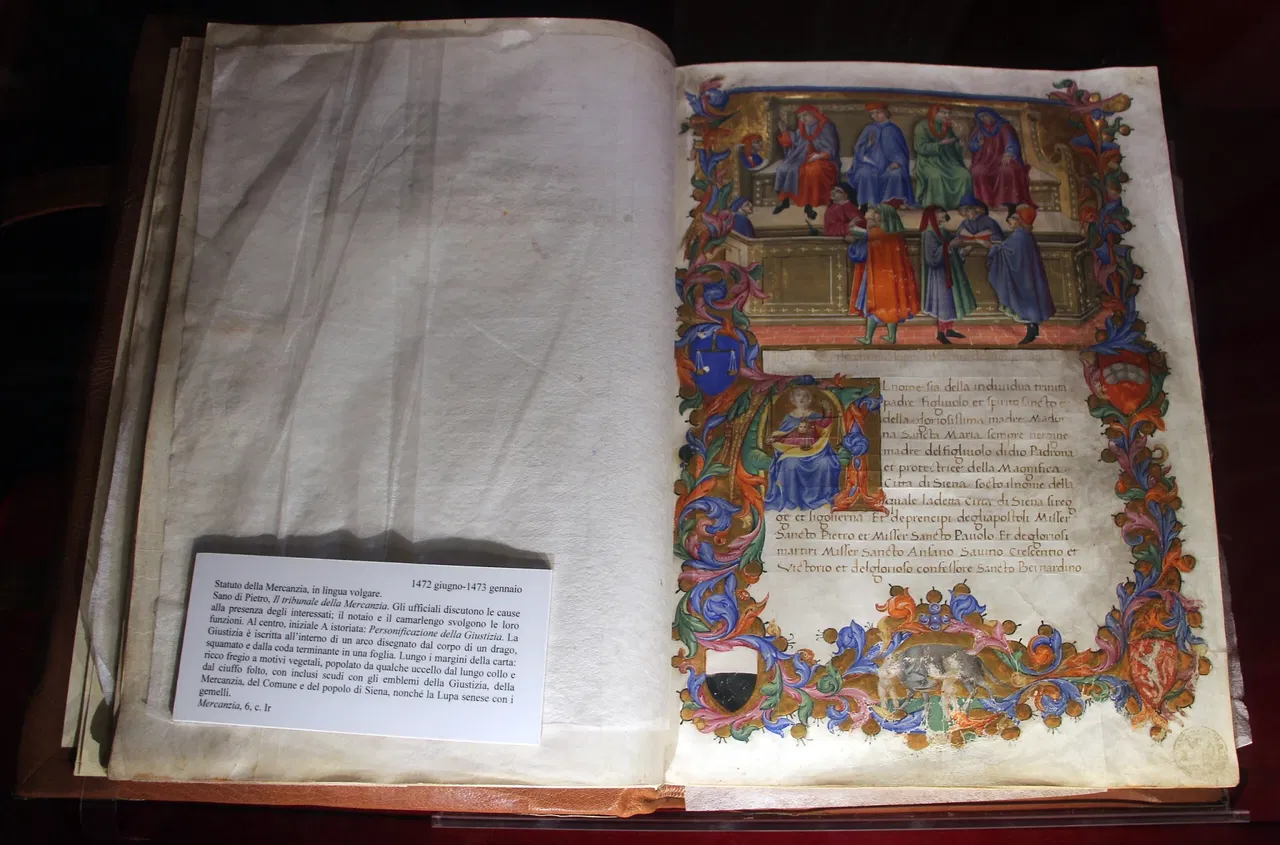 Statuto della Mercanzia, in lingua volgare. 1472 giugno-1473 gennaio
Sano di Pietro, Il tribunale della Mercanzia. Gli ufficiali discutono le cause
alla presenza degli interessati; il notaio e il camarlengo svolgono le loro
funzioni. Al centro, iniziale A istoriata: Personificazione della Giustizia. La
Giustizia è iscritta all'interno di un arco disegnato dal corpo di un drago,
squamato e dalla coda terminante in una foglia. Lungo i margini della carta:
ricco fregio a motivi vegetali, popolato da qualche uccello dal lungo collo e
dal ciuffo folto, con inclusi scudi con gli emblemi della Giustizia, della
Mercanzia, del Comune e del popolo di Siena, nonché la Lupa senese con i
gemelli.
Mercanzia, 6, c. Ir
Lnome sia della individua trinita
padre figliuolo et spirito sancto e
della gloriosissima madre Madon
na Sancta Maria sempre vergine
madre del figliuolo di dio Padrona
et protectrice della Magnifica
Citta di Siena socto il nome della
quale la decta Citta di Siena si reg
ge et si ghoverna Et de prencipi degli apostoli Misser
Sancto Pietro et Misser Sancto Pavolo Et de gloriosi
martiri Misser Sancto Ansano Savino Crescentio et
Victorio et del glorioso confessore Sancto Bernardino